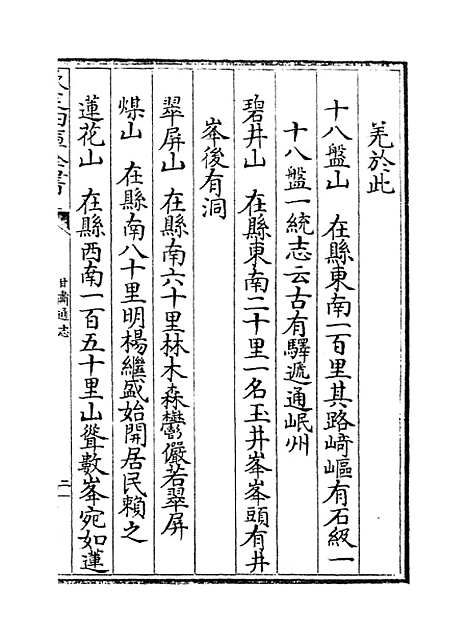 羌於此
十八盤山　在縣東南一百里其路﨑嶇有石級一
十八盤一統志云古有驛遞通岷州
碧井山　在縣東南二十里一名玉井峯峯頭有井
峯後有洞
翠屏山　在縣南六十里林木森鬱儼若翠屏
煤山　在縣南八十里明楊繼盛始開居民賴之
蓮花山　在縣西南一百五十里山聳數峯宛如蓮
甘肅通志